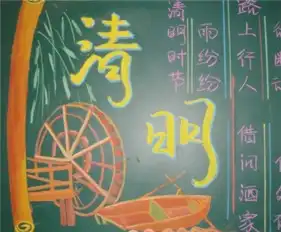 清明
清明时节
雨纷纷
路上行人
借问酒家